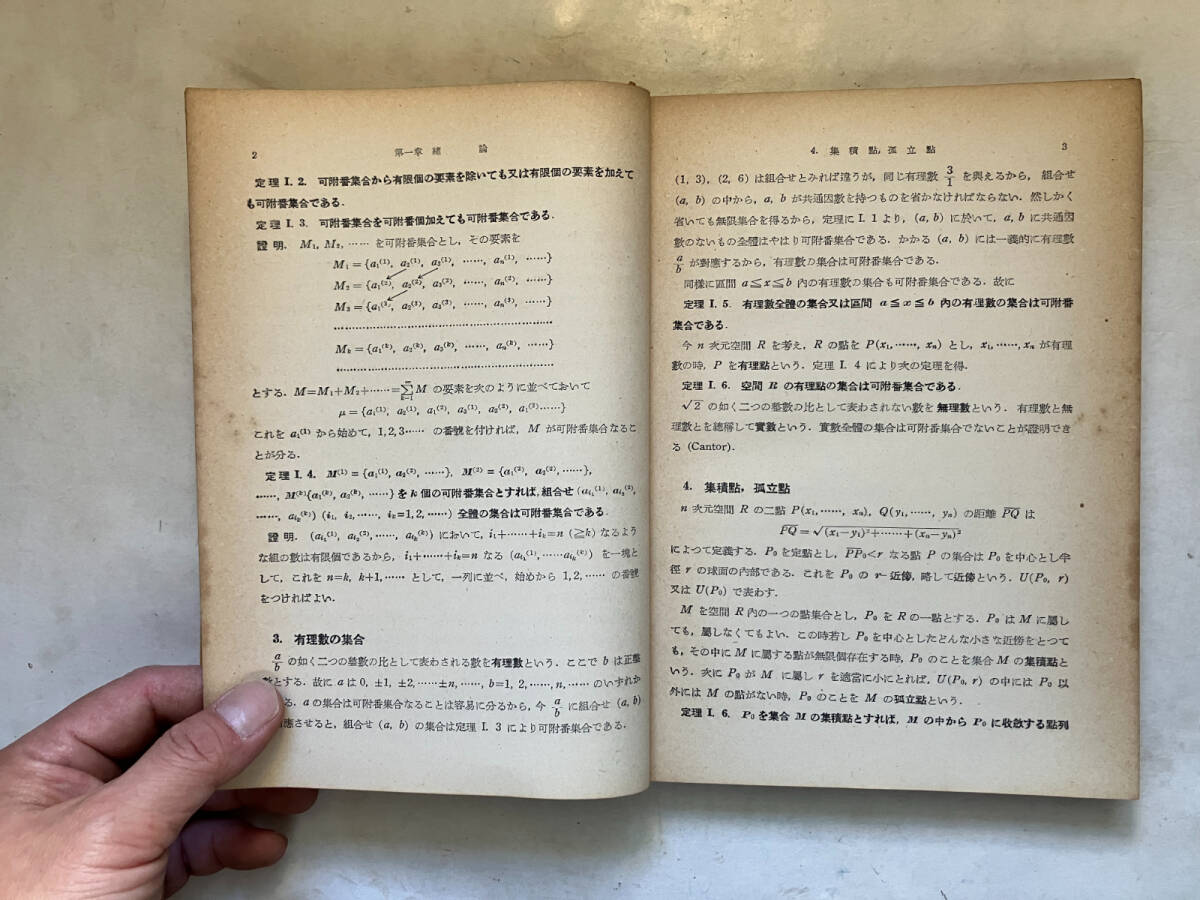 2 第一章 緒 論
定理 I. 2. 可附番集合から有限個の要素を除いても又は有限個の要素を加えて
も可附番集合である.
定理 I. 3. 可附番集合を可附番個加えても可附番集合である.
證明. M₁, M₂, …… を可附番集合とし, その要素を
M₁ = {a₁⁽¹⁾, a₂⁽¹⁾, a₃⁽¹⁾, ……, aₙ⁽¹⁾, ……}
M₂ = {a₁⁽²⁾, a₂⁽²⁾, a₃⁽²⁾, ……, aₙ⁽²⁾, ……}
M₃ = {a₁⁽³⁾, a₂⁽³⁾, a₃⁽³⁾, ……, aₙ⁽³⁾, ……}
………………………………………
Mₖ = {a₁⁽ᵏ⁾, a₂⁽ᵏ⁾, a₃⁽ᵏ⁾, ……, aₙ⁽ᵏ⁾, ……}
………………………………………
とする. M=M₁+M₂+……=∑M の要素を次のように並べておいて
μ = {a₁⁽¹⁾, a₂⁽¹⁾, a₁⁽²⁾, a₃⁽¹⁾, a₂⁽²⁾, a₁⁽³⁾……}
これを a₁⁽¹⁾ から始めて, 1, 2, 3…… の番號を付ければ, M が可附番集合なるこ
とが分る.
定理 I. 4. M⁽¹⁾ = {a₁⁽¹⁾, a₂⁽²⁾, ……}, M⁽²⁾ = {a₁⁽²⁾, a₂⁽²⁾, ……},
……, M⁽ᵏ⁾{a₁⁽ᵏ⁾, a₂⁽ᵏ⁾, ……} を k 個の可附番集合とすれば, 組合せ (aᵢ₁⁽¹⁾, aᵢ₂⁽²⁾,
……, aᵢₖ⁽ᵏ⁾) (i₁, i₂, ……, iₖ=1, 2, ……) 全體の集合は可附番集合である.
證明. (aᵢ₁⁽¹⁾, aᵢ₂⁽²⁾, ……, aᵢₖ⁽ᵏ⁾) において, i₁+……+iₖ=n (≧k) なるよう
な組の數は有限個であるから, i₁+……+iₖ=n なる (aᵢ₁⁽¹⁾, ……aᵢₖ⁽ᵏ⁾) を一塊と
して, これを n=k, k+1, …… として, 一列に並べ, 始めから 1, 2, …… の番號
をつければよい.
3. 有理數の集合
a/b の如く二つの整數の比として表わされる數を有理數という. ここで b は正整
數とする. 故に a は 0, ±1, ±2, ……±n, ……, b=1, 2, ……, n, …… のいずれか
る. a の集合は可附番集合なることは容易に分るから, 今 a/b に組合せ (a, b)
應させると, 組合せ (a, b) の集合は定理 I. 3 により可附番集合である.
4. 集積點, 孤立點 3
(1, 3), (2, 6) は組合せとみれば違うが, 同じ有理數 3/1 を與えるから, 組合せ
(a, b) の中から, a, b が共通因數を持つものを省かなければならない. 然しかく
省いても無限集合を得るから, 定理に I. 1 より, (a, b) に於いて, a, b に共通因
數のないもの全體はやはり可附番集合である. かかる (a, b) には一義的に有理數
a/b が對應するから, 有理數の集合は可附番集合である.
同樣に區間 a≦x≦b 內の有理數の集合も可附番集合である. 故に
定理 I. 5. 有理數全體の集合又は區間 a≦x≦b 內の有理數の集合は可附番
集合である.
今 n 次元空間 R を考え, R の點を P(x₁, ……, xₙ) とし, x₁, ……, xₙ が有理
數の時, P を有理點という. 定理 I. 4 により次の定理を得.
定理 I. 6. 空間 R の有理點の集合は可附番集合である.
√2 の如く二つの整數の比として表わされない數を無理數という. 有理數と無
理數とを總稱して實數という. 實數全體の集合は可附番集合でないことが證明でき
る (Cantor).
4. 集積點, 孤立點
n 次元空間 R の二點 P(x₁, ……, xₙ), Q(y₁, ……, yₙ) の距離 P̅Q̅ は
P̅Q̅ = √(x₁−y₁)²+……+(xₙ−yₙ)²
によつて定義する. P₀ を定點とし, P̅P̅₀<r なる點 P の集合は P₀ を中心とし半
徑 r の球面の內部である. これを P₀ の r−近傍, 略して近傍という. U(P₀, r)
又は U(P₀) で表わす.
M を空間 R 內の一つの點集合とし, P₀ を R の一點とする. P₀ は M に屬し
ても, 屬しなくてもよい. この時若し P₀ を中心としたどんな小さな近傍をとつて
も, その中に M に屬する點が無限個存在する時, P₀ のことを集合 M の集積點と
いう. 次に P₀ が M に屬し r を適當に小にとれば, U(P₀, r) の中には P₀ 以
外には M の點がない時, P₀ のことを M の孤立點という.
定理 I. 6. P₀ を集合 M の集積點とすれば, M の中から P₀ に收斂する點列